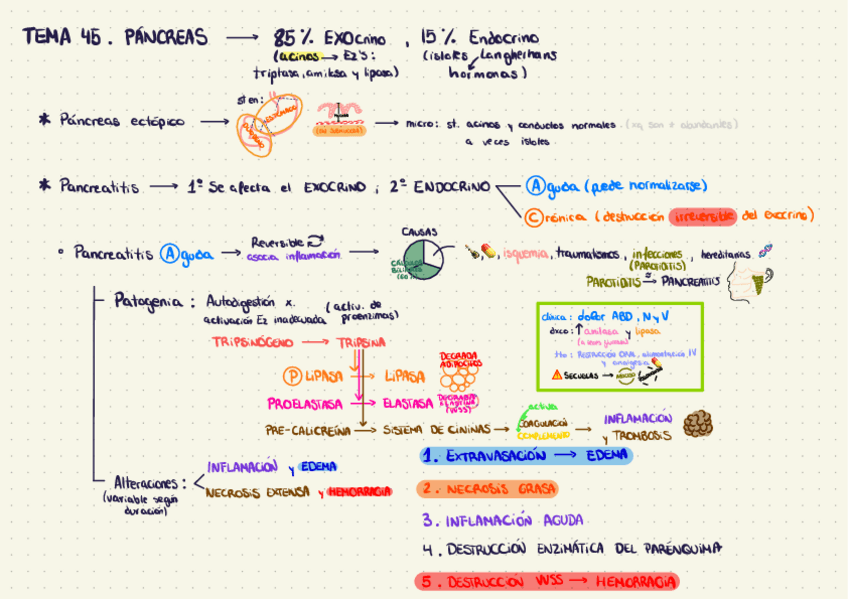 TEMA 45. PÁNCREAS → 85% EXOcrino, 15% Endocrino
(acinos → Ez's: (islotes Langherhans
triptasa, amilasa y lipasa) hormonas)
st en:
* Páncreas ectópico → → micro: st. acinos y conductos normales (xq son + abundantes)
a veces islotes
* Pancreatitis → 1º Se afecta el EXOCRINO ; 2º ENDOCRINO
Aguda (puede normalizarse)
Crónica (destrucción irreversible del exocrino)
CAUSAS
° Pancreatitis Aguda → Reversible
asocia inflamación →
, isquemia, traumatismos, infecciones, hereditarias
(PAROTIDITIS)
PAROTIDITIS PANCREATITIS
Patogenia: Autodigestión x. (activ. de
activación Ez inadecuada proenzimas)
TRIPSINÓGENO → TRIPSINA
P LIPASA → LIPASA DEGRADA
ADIPOCITOS
PROELASTASA → ELASTASA
(VVSS)
PRE-CALICREÍNA → SISTEMA DE CININAS → COAGULACIÓN
activa
COMPLEMENTO
→ INFLAMACIÓN
y TROMBOSIS
clínica: dolor ABD, N y V
dxco: ↑ amilasa y lipasa
tto: RESTRICCIÓN ORAL, alimentación IV
y analgesia
SECUELAS →
Alteraciones:
(variable según
duración)
INFLAMACIÓN y EDEMA
NECROSIS EXTENSA y HEMORRAGIA
1. EXTRAVASACIÓN → EDEMA
2. NECROSIS GRASA
3. INFLAMACIÓN AGUDA
4. DESTRUCCIÓN ENZIMÁTICA DEL PARÉNQUIMA
5. DESTRUCCION VVSS → HEMORRAGIA